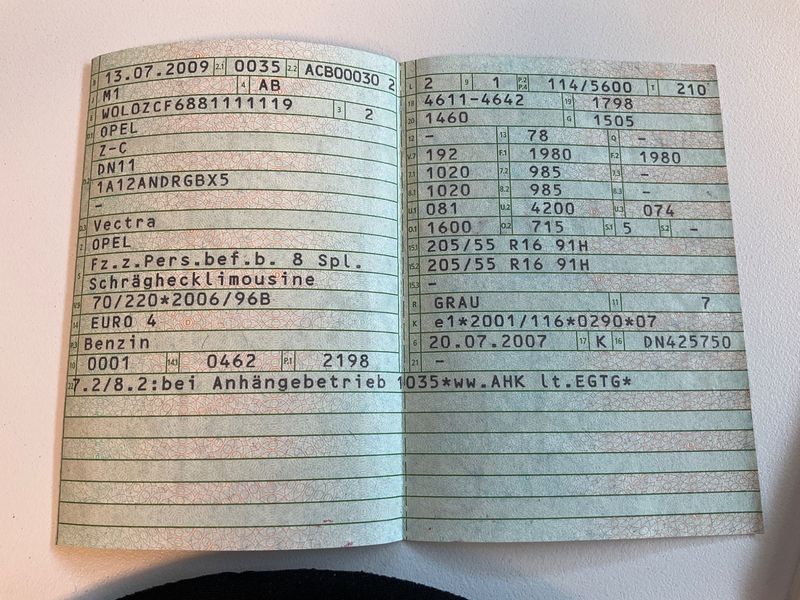 B 13.07.2009 2.1 0035 2.2 ACB00030 2
J M1 4 AB
E W0L0ZCF6881111119 3 2
D.1 OPEL
Z-C
DN11
1A12ANDRGBX5
-
D.3 Vectra
2 OPEL
5 Fz.z.Pers.bef.b. 8 Spl.
Schräghecklimousine
V.9 70/220*2006/96B
14 EURO 4
P.3 Benzin
10 0001 14.1 0462 P.1 2198
22 7.2/8.2:bei Anhängebetrieb 1035*ww.AHK lt.EGTG*
L 2 9 1 P.2 P.4 114/5600 T 210
18 4611-4642 19 1798
20 1460 G 1505
12 - 13 78 Q -
V.7 192 F.1 1980 F.2 1980
7.1 1020 7.2 985 7.3 -
8.1 1020 8.2 985 8.3 -
U.1 081 U.2 4200 U.3 074
O.1 1600 O.2 715 S.1 5 S.2 -
15.1 205/55 R16 91H
15.2 205/55 R16 91H
15.3 -
R GRAU 11 7
K e1*2001/116*0290*07
6 20.07.2007 17 K 16 DN425750
21 -